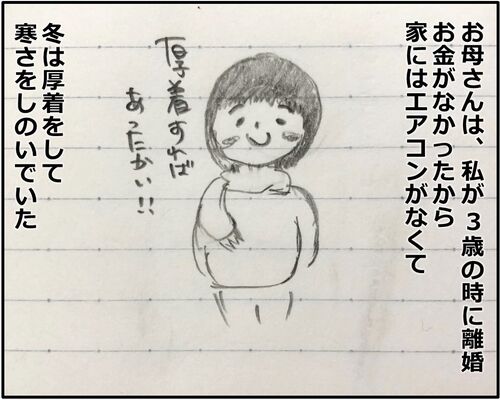 お母さんは、私が3歳の時に離婚
お金がなかったから
家にはエアコンがなくて
厚着すれば
あったかい!!
冬は厚着をして
寒さをしのいでいた